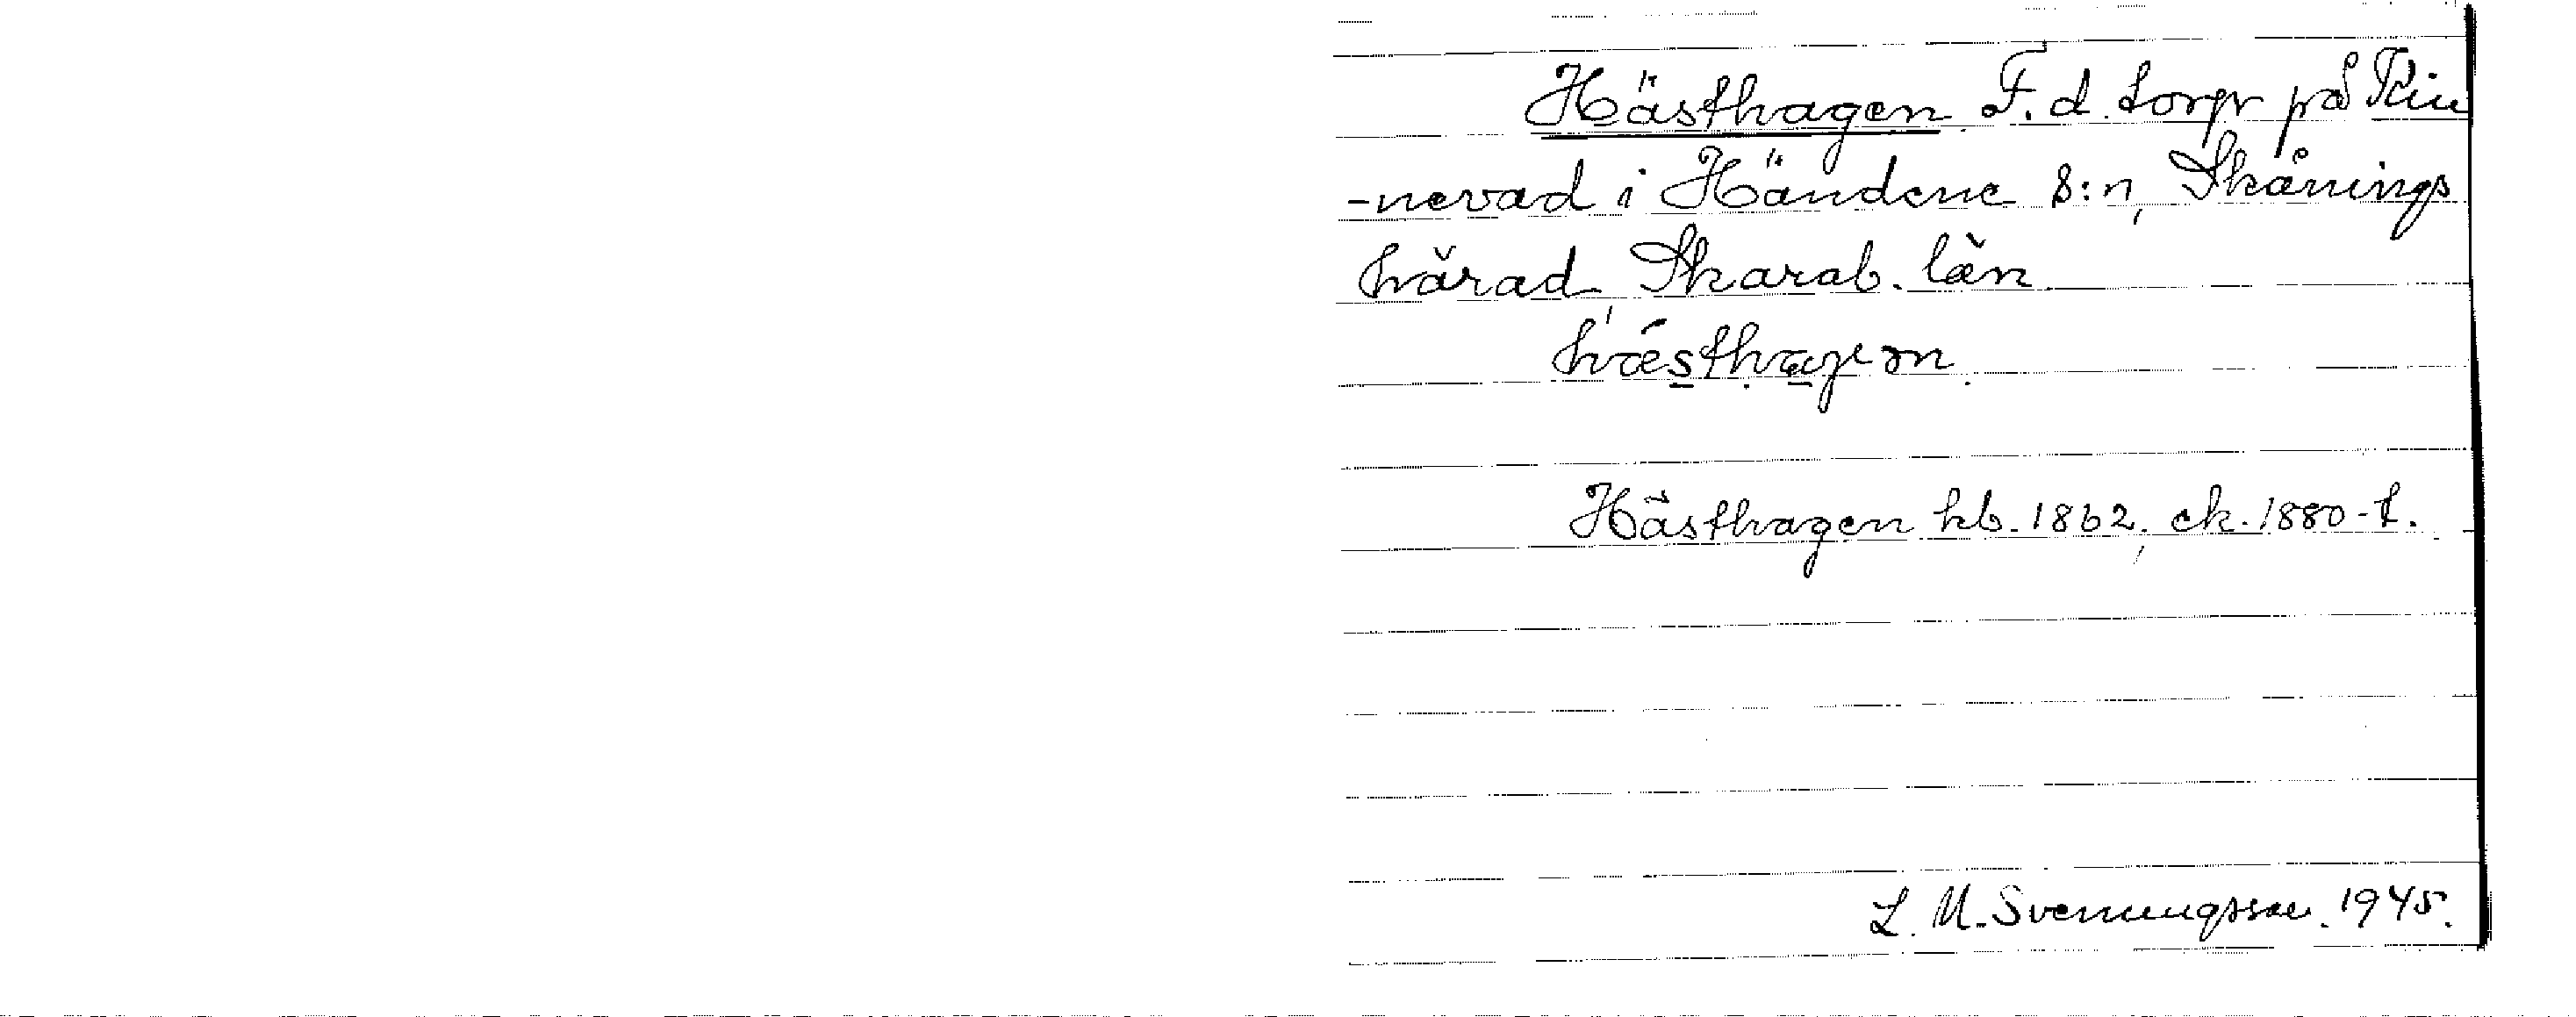 Hästhagen F. d. torp på Rin
-nevad i Händene s:n, Skånings
härad, Skarab. län
hæsthagen.
Hästhagen hb. 1862, ek. 1880-t.
L. M. Svenungsson. 1945.